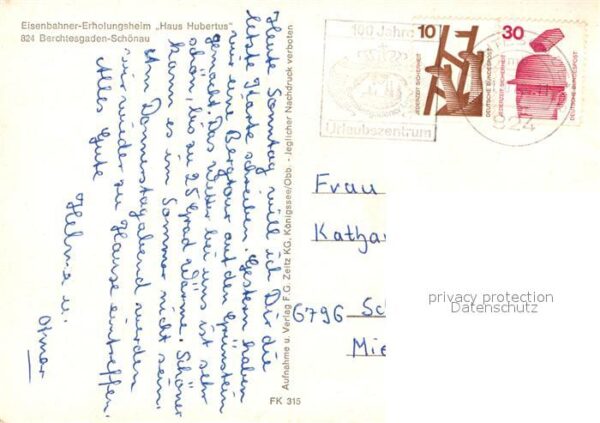 Eisenbahner-Erholungsheim „Haus Hubertus"
824 Berchtesgaden-Schönau
Heute Sonntag will ich Dir die
letzte Karte schreiben. Gestern haben
wir eine Bergtour auf den Grünstein
gemacht. Das Wetter bei uns ist sehr
schön, bis zu 25 Grad Wärme. Schöner
kann es im Sommer nicht sein.
Am Donnerstagabend werden
wir wieder zu Hause eintreffen.
Alles Gute
Helma u.
Otmar
Aufnahme u. Verlag F.G. Zeitz KG, Königssee/Obb. - Jeglicher Nachdruck verboten
FK 315
100 Jahre
Urlaubszentrum
10
JEDERZEIT SICHERHEIT
DEUTSCHE BUNDESPOST
30
JEDERZEIT SICHERHEIT
DEUTSCHE BUNDESPOST
824
Frau
Katha
6796 Sc
Mie
privacy protection
Datenschutz